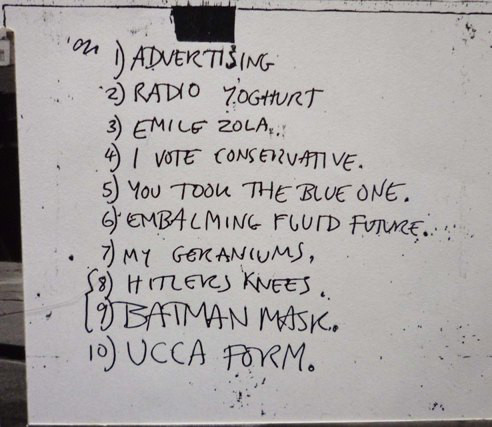 1) ADVERTISING
2) RADIO YOGHURT
3) EMILE ZOLA..
4) I VOTE CONSERVATIVE.
5) YOU TOOK THE BLUE ONE.
6) EMBALMING FLUID FUTURE.
7) MY GERANIUMS.
8) HITLERS KNEES.
9) BATMAN MASK.
10) UCCA FORM.